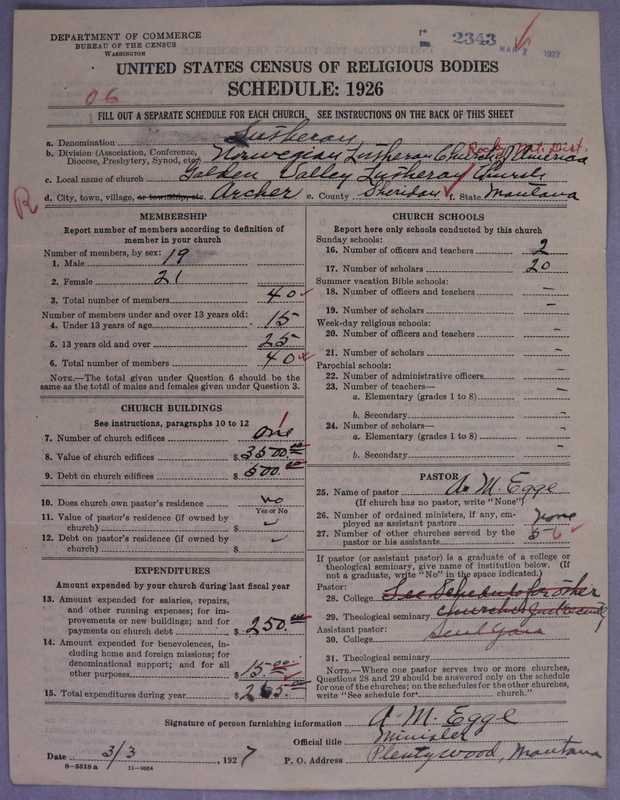 DEPARTMENT OF COMMERCE
BUREAU OF THE CENSUS
WASHINGTON
2343
MAR 2 1927
UNITED STATES CENSUS OF RELIGIOUS BODIES
SCHEDULE: 1926
06
FILL OUT A SEPARATE SCHEDULE FOR EACH CHURCH. SEE INSTRUCTIONS ON THE BACK OF THIS SHEET
a. Denomination Lutheran
Rocky Mt. Dist.
b. Division (Association, Conference, Diocese, Presbytery, Synod, etc.) Norwegian Lutheran Church of America
c. Local name of church Golden Valley Lutheran Church
d. City, town, village, or township, etc. Archer e. County Sheridan f. State Montana
R
MEMBERSHIP
Report number of members according to definition of
member in your church
Number of members, by sex:
1. Male 19
2. Female 21
3. Total number of members 40
Number of members under and over 13 years old:
4. Under 13 years of age 15
5. 13 years old and over 25
6. Total number of members 40
NOTE.—The total given under Question 6 should be the
same as the total of males and females given under Question 3.
CHURCH BUILDINGS
See instructions, paragraphs 10 to 12
7. Number of church edifices one
8. Value of church edifices $3500.00
9. Debt on church edifices $500.00
10. Does church own pastor's residence no
Yes or No
11. Value of pastor's residence (if owned by
church) $
12. Debt on pastor's residence (if owned by
church) $
EXPENDITURES
Amount expended by your church during last fiscal year
13. Amount expended for salaries, repairs,
and other running expenses; for im-
provements or new buildings; and for
payments on church debt $250.00
14. Amount expended for benevolences, in-
cluding home and foreign missions; for
denominational support; and for all
other purposes $15.00
15. Total expenditures during year $265.00
CHURCH SCHOOLS
Report here only schools conducted by this church
Sunday schools:
16. Number of officers and teachers 2
17. Number of scholars 20
Summer vacation Bible schools:
18. Number of officers and teachers –
19. Number of scholars –
Week-day religious schools:
20. Number of officers and teachers –
21. Number of scholars –
Parochial schools:
22. Number of administrative officers –
23. Number of teachers—
a. Elementary (grades 1 to 8) –
b. Secondary –
24. Number of scholars—
a. Elementary (grades 1 to 8) –
b. Secondary –
PASTOR
25. Name of pastor A. M. Egge
(If church has no pastor, write "None")
26. Number of ordained ministers, if any, em-
ployed as assistant pastors none
27. Number of other churches served by the
pastor or his assistants 5 6
If pastor (or assistant pastor) is a graduate of a college or
theological seminary, give name of institution below. (If
not a graduate, write "No" in the space indicated.)
Pastor:
28. College See Schedule for other
29. Theological seminary churches
Assistant pastor:
30. College
31. Theological seminary
NOTE.—Where one pastor serves two or more churches,
Questions 28 and 29 should be answered only on the schedule
for one of the churches; on the schedules for the other churches,
write "See schedule for church."
Signature of person furnishing information A. M. Egge
Official title Minister
Date 3/3, 1927 P. O. Address Plentywood, Montana
8—5518 a 11—9054